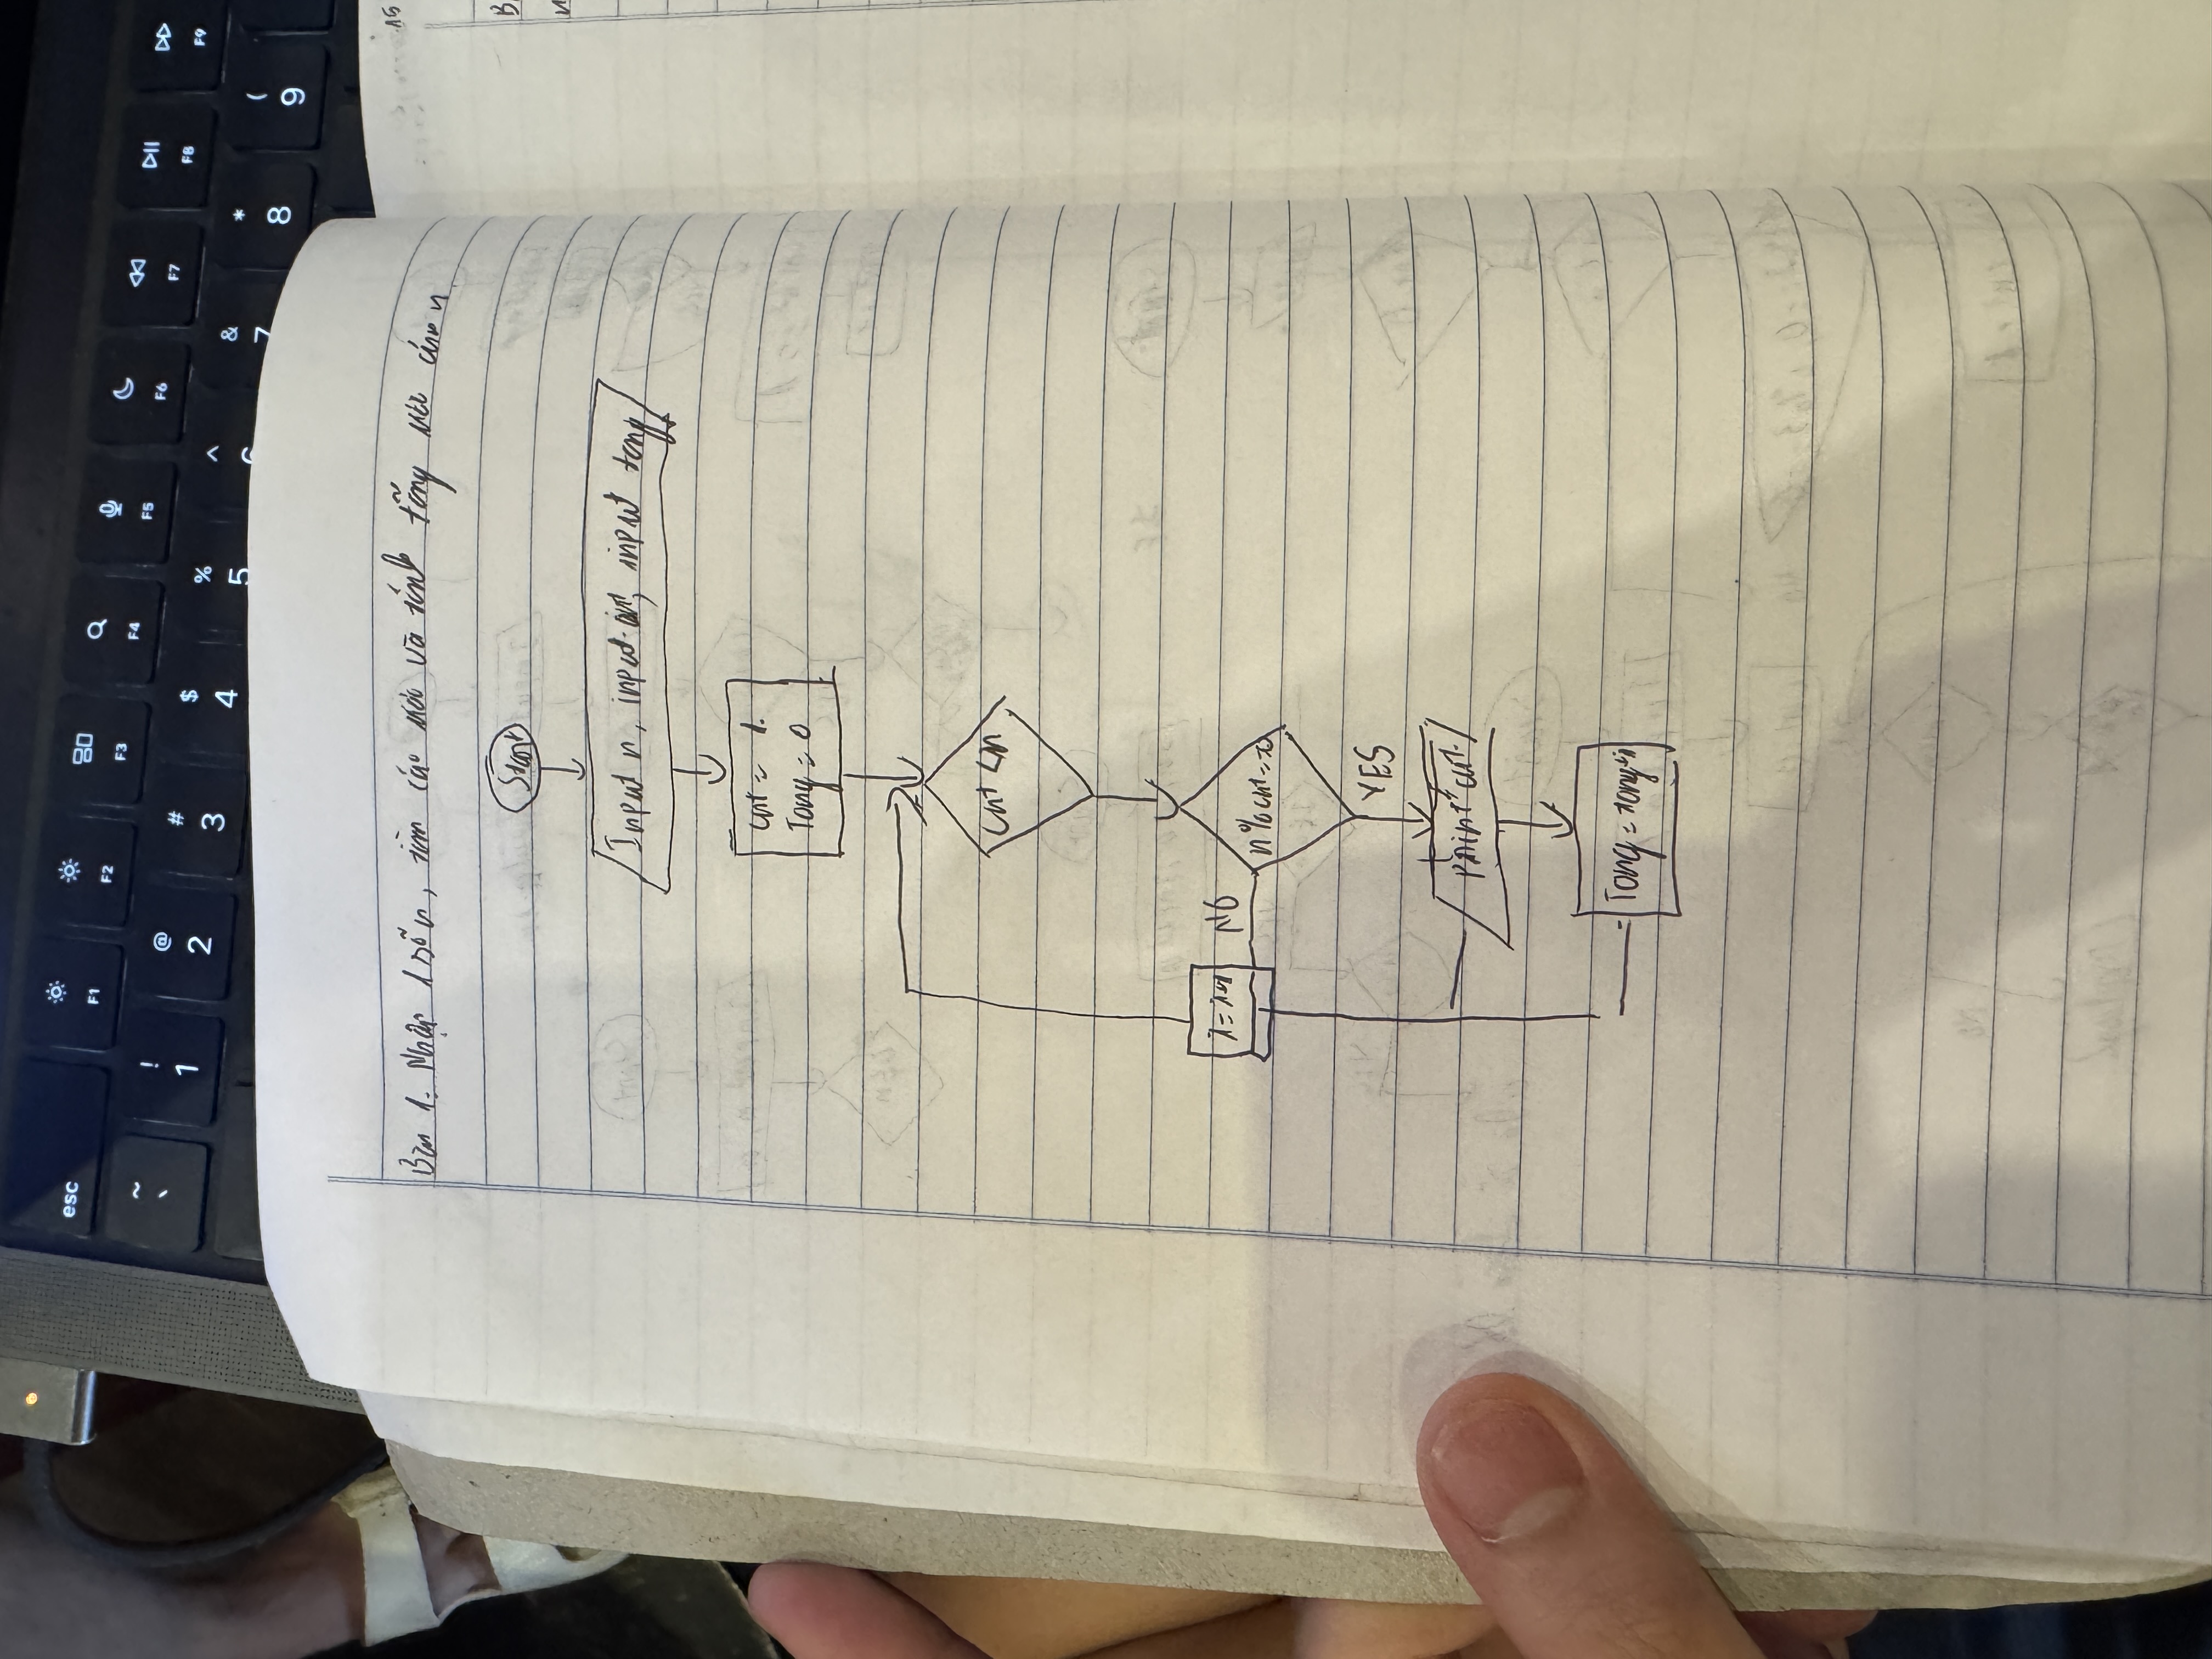 esc F1 F2 F3 F4 F5 F6 F7 F8 F9
~ ` ! 1 @ 2 # 3 $ 4 % 5 ^ 6 & 7 * 8 ( 9
15
Bài 1: Nhập 1 số n, tìm các ước và tính tổng ước của n.
B
Start
Input n, input cnt, input tong
cnt = 1.
Tong = 0
cnt <n
i = i+1 NO n%cnt==0
YES
print cnt
Tong = tong+i